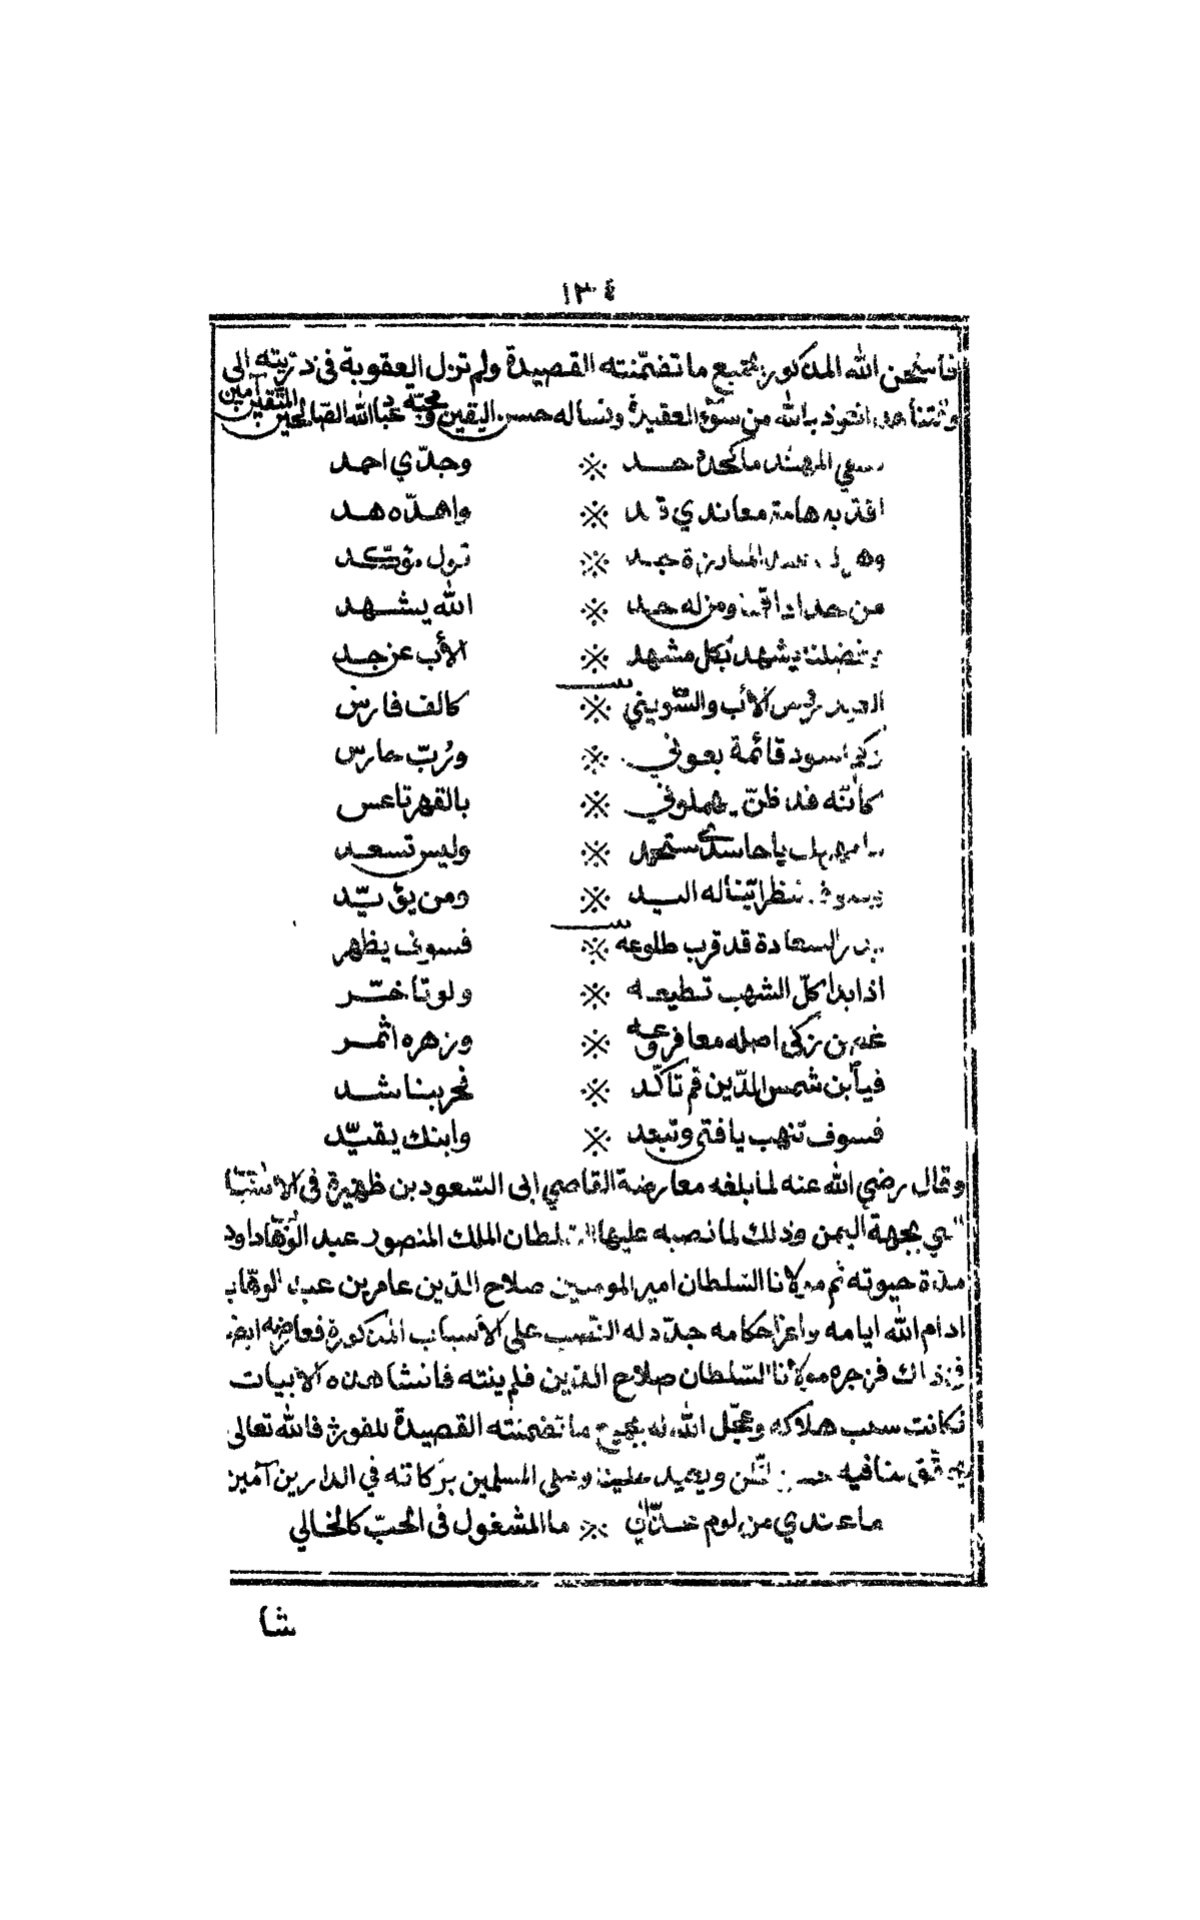 ١٣٤
الله المذكور بجميع ما تضمّنته القصيدة ولم تزل العقوبة في ذرّيته الى
نعوذ بالله من سوء العقيدة ونساله حسن اليقين ومحبّة عباد الله الصّالحين المتّقين آمين
المهنّد ما لحده حد ※ وجدّي احمد
به هامة معاندي قد ※ واهدّه هد
المبارزة جد ※ تول مؤكّد
من ومن له حد ※ الله يشهد
يشهد بكل مشهد ※ الأب عن جد
الأب والتّويني ※ كالف فارس
اسود قائمة بعوني ※ وربّ حارس
كأنّه قد ظنّ يهملوني ※ بالقهر تاعس
يا حاسدي ستجهد ※ وليس تسعد
له اليد ※ ومن يؤيّد
السعادة قد قرب طلوعه ※ فسوف يظهر
اذا بدا كلّ الشهب تطيعه ※ ولو تاخّر
غصن زكي اصله معا فروعه ※ وزهره اثمر
فيا ابن شمس الدّين قم تاكّد ※ فحربنا شد
فسوف تنهب يا فتى وتبعد ※ وابنك يقيّد
وقال رضي الله عنه لما بلغه معارضة القاضي ابى السّعود بن ظهيرة في الاسباب
التي بجهة اليمن وذلك لما نصبه عليها السّلطان الملك المنصور عبد الوهّاب داود
مدة حيوته ثم مولانا السّلطان امير المومنين صلاح الدّين عامر بن عبد الوهّاب
ادام الله ايامه واعز احكامه جدّد له النّصب على الأسباب المذكورة فعارضه ايضا
في ذاك فزجره مولانا السّلطان صلاح الدّين فلم ينته فانشا هذه الابيات
فكانت سبب هلاكه وعجّل الله له بجميع ما تضمنته القصيدة للفور فالله تعالى
يوفّق منا فيه حسن الظّن ويعيد علينا وعلى المسلمين بركاته في الدارين آمين
ما عندي من لوم عذّالي ※ ما المشغول في الحبّ كالخالي
شا